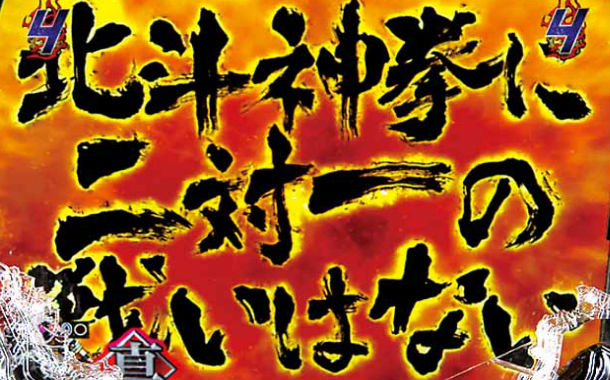 4 4
北斗神拳に
二対一の
戦いはない